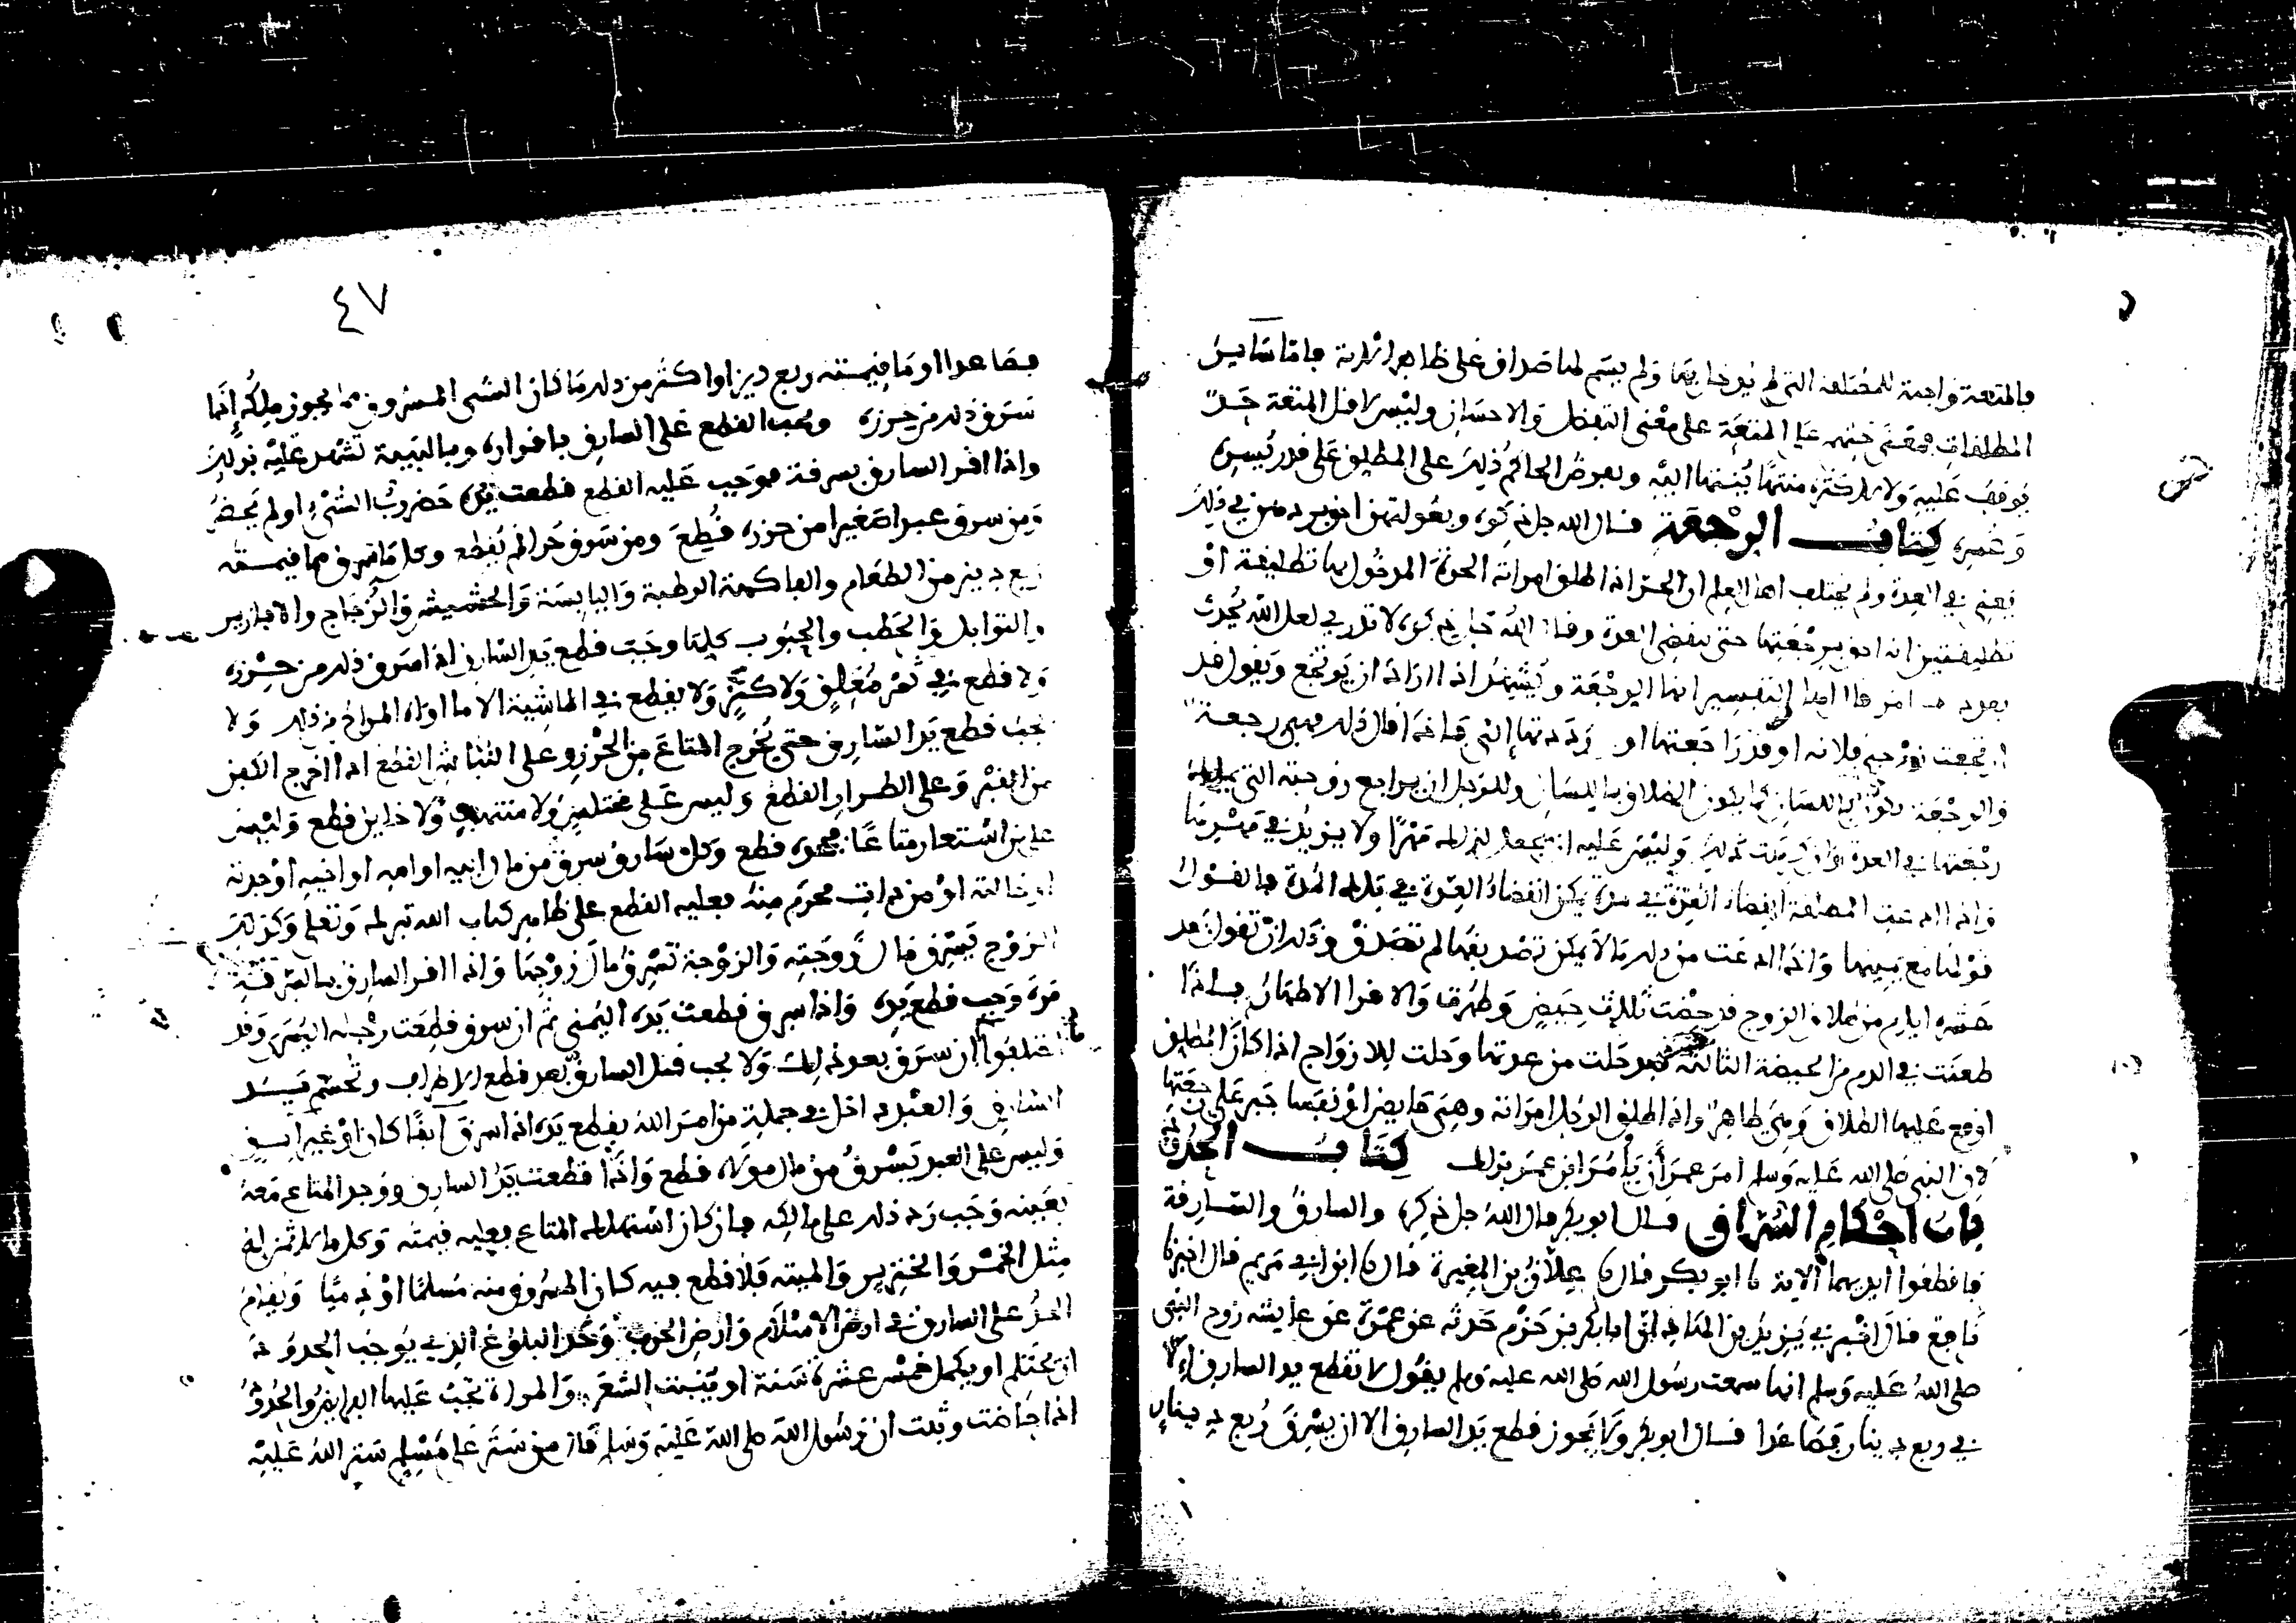 فالمتعة واجبة للمطلقة التي لم يدخل بها ولم يسم لها صداق على ظاهر الاية فاما سائر
المطلقات فمعنى حثهم على المتعة على معنى التفضل والاحسان وليس لاقل المتعة حد
يوقف عليه ولا لاكثره منتها ينتها اليه ويعرض الحاكم ذلك على المطلق على قدر يسره
وعسره كتاب الرجعة قال الله جل ذكره وبعولتهن احق بردهن في ذلك
يعني في العدة ولم يختلف اهل العلم ان الحر اذا طلق امراته الحرة المدخول بها تطليقة او
تطليقتين انه احق برجعتها حتى تنقضي العدة وقال الله جل ذكره لا تدري لعل الله يحدث
بعد ذلك امرا قال اهل التفسير انها الرجعة ويشهد اذا اراد ان يرتجع ويقول قد
ارتجعت زوجتي فلانة او قد راجعتها او رددتها إلي فاذا قال ذلك فهي رجعة
والرجعة تكون باللسان كما يكون الطلاق باللسان وللرجل ان يراجع زوجته التي يملك
رجعتها في العدة وان كرهت ذلك وليس عليه ان يجعل لذلك مهرا ولا يزيد في مهرها
واذا ادعت المطلقة انقضاء العدة في مدة يمكن انقضاء العدة في تلك المدة فالقول
قولها مع يمينها واذا ادعت من ذلك ما لا يمكن تصديقها لم تصدق وذلك ان تقول بعد
عشرة ايام من طلاق الزوج قد حضت ثلاث حيض وطهرت والاقرا الاطهار فاذا
طعنت في الدم من الحيضة الثالثة فقد خلت من عدتها وحلت للازواج اذا كان المطلق
اوقع عليها الطلاق وهي طاهر واذا طلق الرجل امراته وهي حايض او نفسا جبر على رجعتها
لان النبي صلى الله عليه وسلم امر عمر أن يأمر ابن عمر بذلك كتاب الحدود
باب احكام السراق قال ابو بكر قال الله جل ذكره والسارق والسارقة
فاقطعوا ايديهما الاية نا ابو بكر قال نا علان بن المغيرة قال نا ابن ابي مريم قال اخبرنا
نافع قال اخبرني يزيد بن الهاد ان ابا بكر بن حزم حدثه عن عمرة عن عايشة زوج النبي
صلى الله عليه وسلم انها سمعت رسول الله صلى الله عليه وسلم يقول لا تقطع يد السارق إلا
في ربع دينار فصاعدا قال ابو بكر ولا يجوز قطع يد السارق الا ان يسرق ربع دينار
٤٧
فصاعدا او ما قيمته ربع دينار او اكثر من ذلك ما كان الشي المسروق مما يجوز ملكه إذا
سرق ذلك من حرزه ويجب القطع على السارق باقراره وبالبينة تشهد عليه بذلك
واذا اقر السارق بسرقة فوجب عليه القطع قطعت يده حضر رب الشيء او لم يحضر
ومن سرق عبدا صغيرا من حرزه قطع ومن سرق حرا لم يقطع وكل ما سرق مما قيمته
ربع دينار من الطعام والفاكهة الرطبة واليابسة والحشيش والزجاج والابازير
والتوابل والحطب والحبوب كلها وجبت قطع يد السارق اذا سرق ذلك من حرزه
ولا قطع في ثمر معلق ولا كثر ولا يقطع في الماشية الا ما اواه المراح من ذلك ولا
يجب قطع يد السارق حتى يخرج المتاع من الحرز وعلى النباش القطع اذا اخرج الكفن
من القبر وعلى الطرار القطع وليس على مختلس ولا منتهب ولا خاين قطع وليس
على من استعار متاعا فجحده قطع وكل سارق سرق من مال ابيه او امه او اخيه او جدته
او خالته او من ذات محرم منه فعليه القطع على ظاهر كتاب الله تبرك وتعلى وكذلك
الزوج يسرق مال زوجته والزوجة تسرق مال زوجها واذا اقر السارق بالسرقة
مرة وجب قطع يده واذا سرق قطعت يده اليمنى ثم ان سرق قطعت رجله اليسرى وقد
اختلفوا ان سرق بعد ذلك ولا يجب قتل السارق بعد قطع الاطراف وتحسم يد
السارق والعبد داخل في جملة من امر الله بقطع يده اذا سرق آبقا كان او غير ابق
وليس على العبد يسرق من مال مولاه قطع واذا قطعت يد السارق ووجد المتاع معه
بعينه وجب رد ذلك على مالكه فان كان استهلك المتاع فعليه قيمته وكل ما لا ثمن له
مثل الخمر والخنزير والميتة فلا قطع فيه كان المسروق منه مسلما او ذميا ويقام
الحد على السارق في ارض الاسلام وارض الحرب وحد البلوغ الذي يوجب الحدود
ان يحتلم او يكمل خمس عشرة سنة او ينبت الشعر والمراة تجب عليها الفرايض والحدود
اذا حاضت وثبت ان رسول الله صلى الله عليه وسلم قال من ستر على مسلم ستر الله عليه